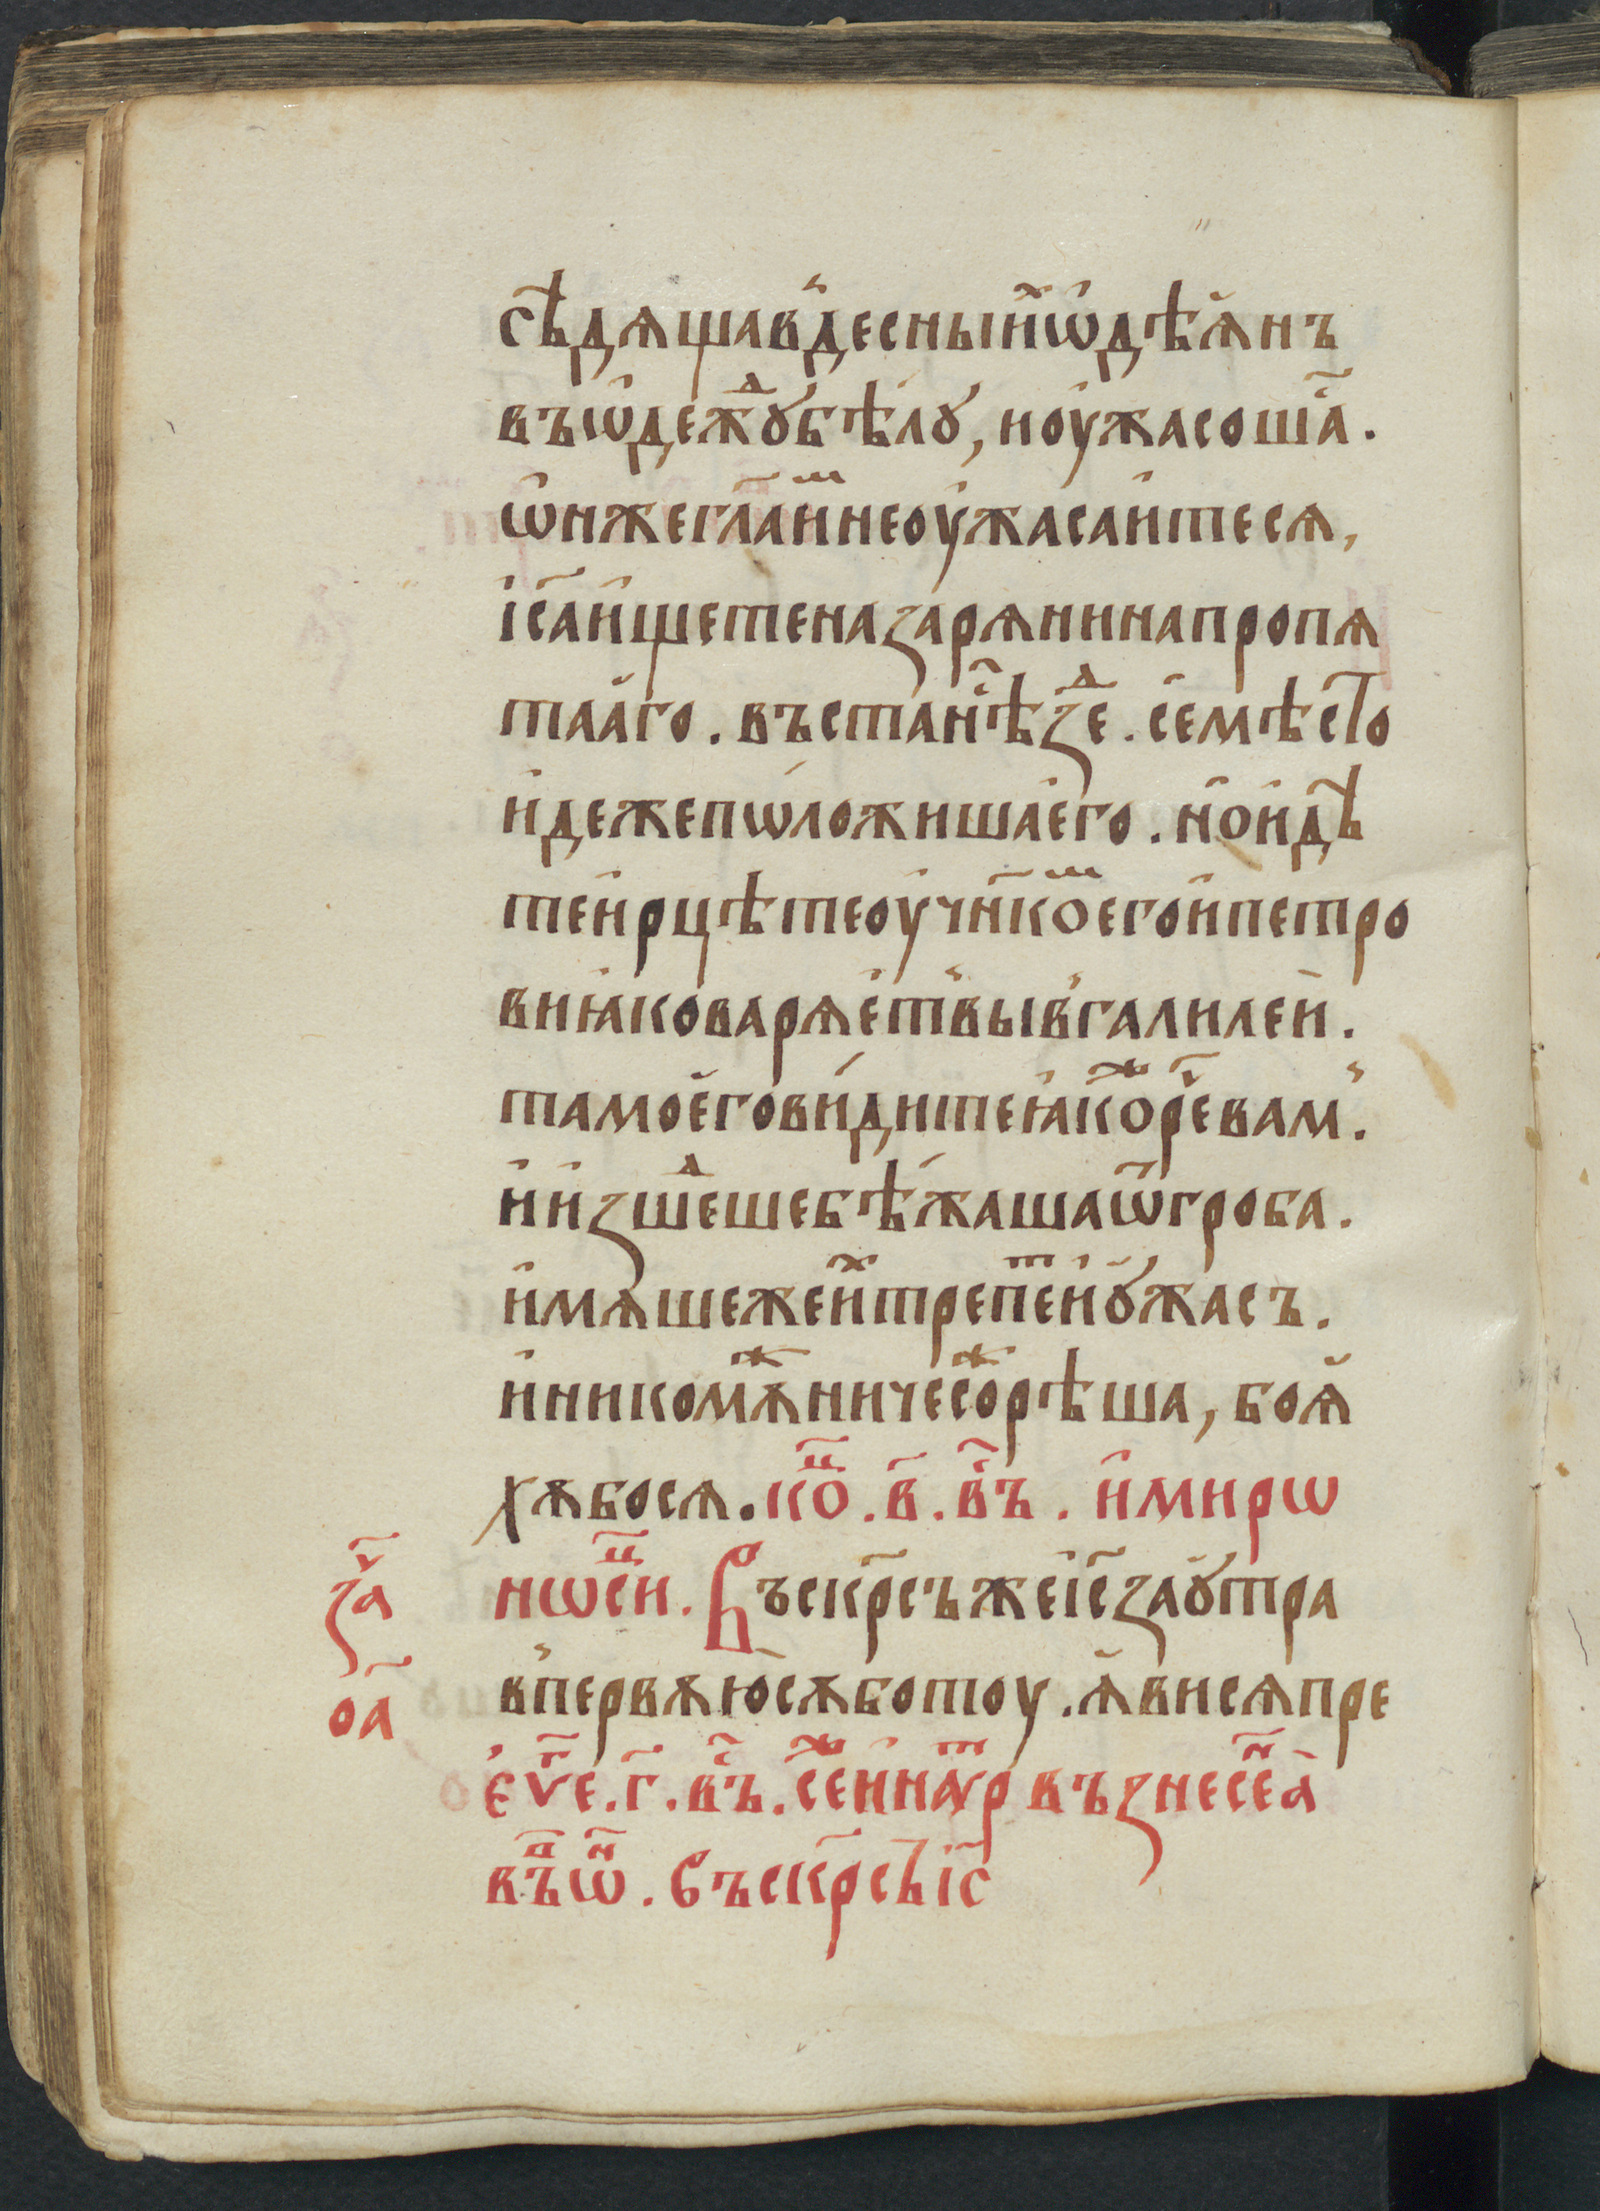 сѣдѧща в҆ десныих ѡ҆дѣѧ҆нъ
въ ѡ҆дежⷣꙋ бѣлꙋ, и оужасошаⷭ҇.
ѡ҆н же гл҃а иⷨ не оу҆жасаите сѧ,
і҆с҃а и҆щете назарѧнина пропѧ
таа҆го. въста нⷭ҇ѣ зⷣе. се҆ мѣсто
и҆деже пѡложиша е҆го. но и҆дѣ
те и҆ рцѣте оу҆чн҃кѡⷨ его и҆ петро
ви ꙗ҆ко варѧе҆т вы в҆ галилеи.
тамо е҆го видите ꙗ҆коⷤ реⷱ҇ вам҆.
и҆ и҆зшеⷣше бѣжаша ѿ гроба.
и҆мѧше же иⷯ трепеⷮ и҆ ꙋ҆жасъ.
и҆ никомꙋⷤ ничесоⷤ рѣша, боѧ҆
хѫ бо сѧ. коⷰ҇. в҃. вⷭ҇ъ. и҆ миро
нѡсиⷰ҇. Въскрⷭ҇съ же і҆с҃ заꙋ҆тра
заⷱ҇
о҃а
в҆ первѫю сѫботоу. ꙗ҆ви сѧ пре
е҆ѵⷢ҇е. г҃. вⷭ҇ъ. сеⷤ и҆ на ѵ҆тр възнесеⷩ҇а
въ пⷩ҇ѡ. Въскрⷭ҇съ і҆с҃